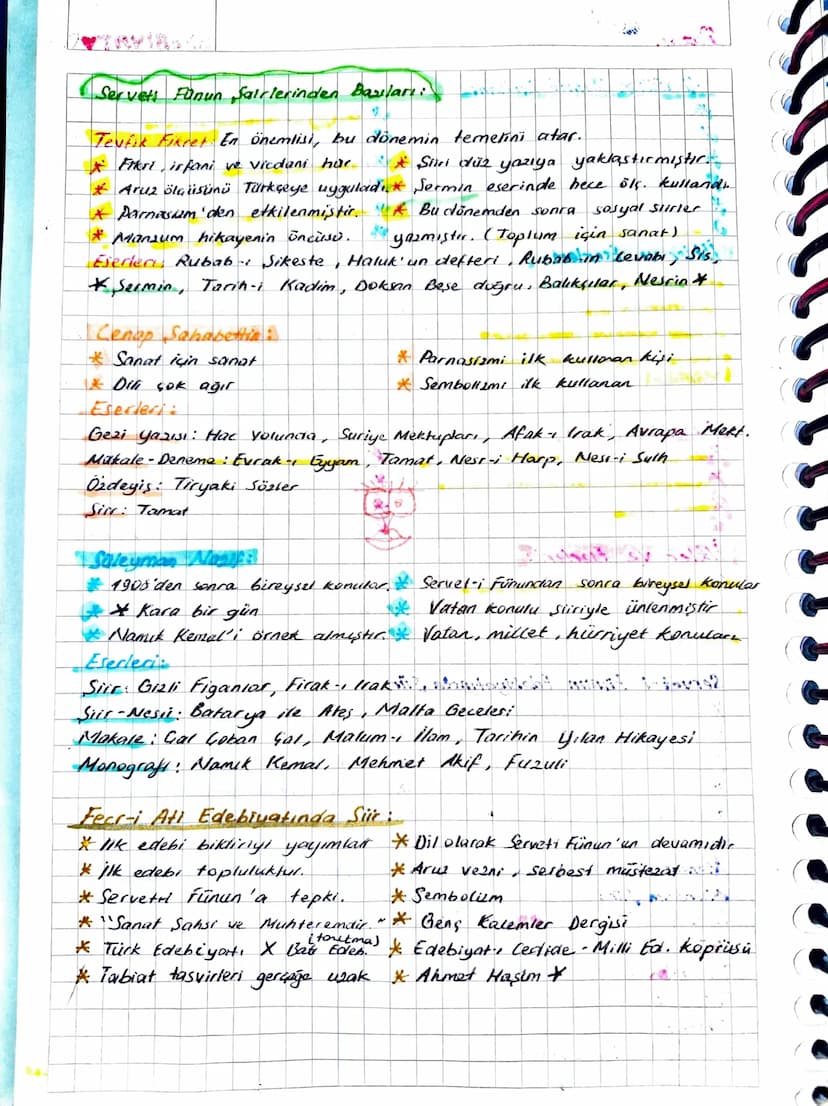 Serveti Fünun Şairlerinden Bazıları:
Tevfik Fikret: En önemlisi, bu dönemin temelini atar.
* Fikri, irfani ve vicdani hür * Şiiri düz yazıya yaklaştırmıştır.
* Aruz ölçüsünü Türkçeye uyguladı. * Şermin eserinde hece ölç. kullandı.
* Parnasizm'den etkilenmiştir. * Bu dönemden sonra sosyal şiirler
* Manzum hikayenin öncüsü. yazmıştır. (Toplum için sanat)
Eserleri: Rubab-ı Şikeste, Haluk'un defteri, Rubab-ın Cevabı, Sis,
* Şermin, Tarih-i Kadim, Doksan Beşe doğru, Balıkçılar, Nesrin *
Cenap Şahabettin:
* Sanat için sanat * Parnasizmi ilk kullanan kişi
* Dili çok ağır * Sembolizmi ilk kullanan
Eserleri:
Gezi yazısı: Hac Yolunda, Suriye Mektupları, Afak-ı Irak, Avrupa Mekt.
Makale-Deneme: Evrak-ı Eyyam, Tamat, Nesr-i Harp, Nesr-i Sulh
Özdeyiş: Tiryaki Sözler
Şiir: Tamat
Süleyman Nazif:
* 1908'den sonra bireysel konular. * Servet-i Fünundan sonra bireysel konular
* * Kara bir gün * Vatan konulu şiiriyle ünlenmiştir
* Namık Kemal'i örnek almıştır. * Vatan, millet, hürriyet konuları
Eserleri:
Şiir: Gizli Figanlar, Firak-ı Irak
Şiir-Nesir: Batarya ile Ateş, Malta Geceleri
Makale: Çal Çoban Çal, Malum-ı İlam, Tarihin Yılan Hikayesi
Monografi: Namık Kemal, Mehmet Akif, Fuzuli
Fecr-i Ati Edebiyatında Şiir:
* İlk edebi bildiriyi yayımlar * Dil olarak Serveti Fünun'un devamıdır
* İlk edebi topluluktur. * Aruz vezni, serbest müstezat
* Serveti Fünun'a tepki. * Sembolizm
* "Sanat Şahsi ve Muhteremdir." * Genç Kalemler Dergisi
(tanıtma)
* Türk Edebiyatı X Batı Edeb. * Edebiyat-ı Cedide - Milli Ed. köprüsü
* Tabiat tasvirleri gerçeğe uzak * Ahmet Haşim *